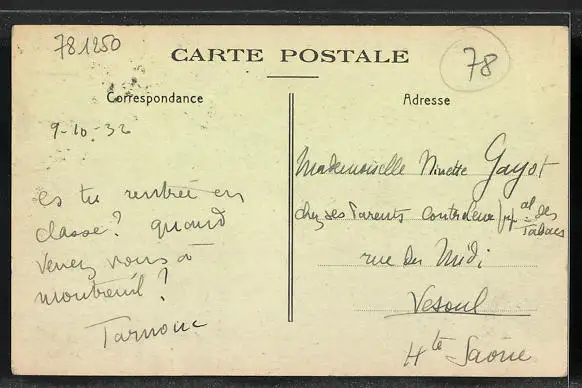 781250
CARTE POSTALE
78
Correspondance
Adresse
9-10-32
es tu rentrée en
classe? quand
venez vous à
montreuil?
Mademoiselle Ninette Gayot
chez ses Parents Controleur pp.al des
Tabacs
rue du Midi
Vesoul
Hte Saône